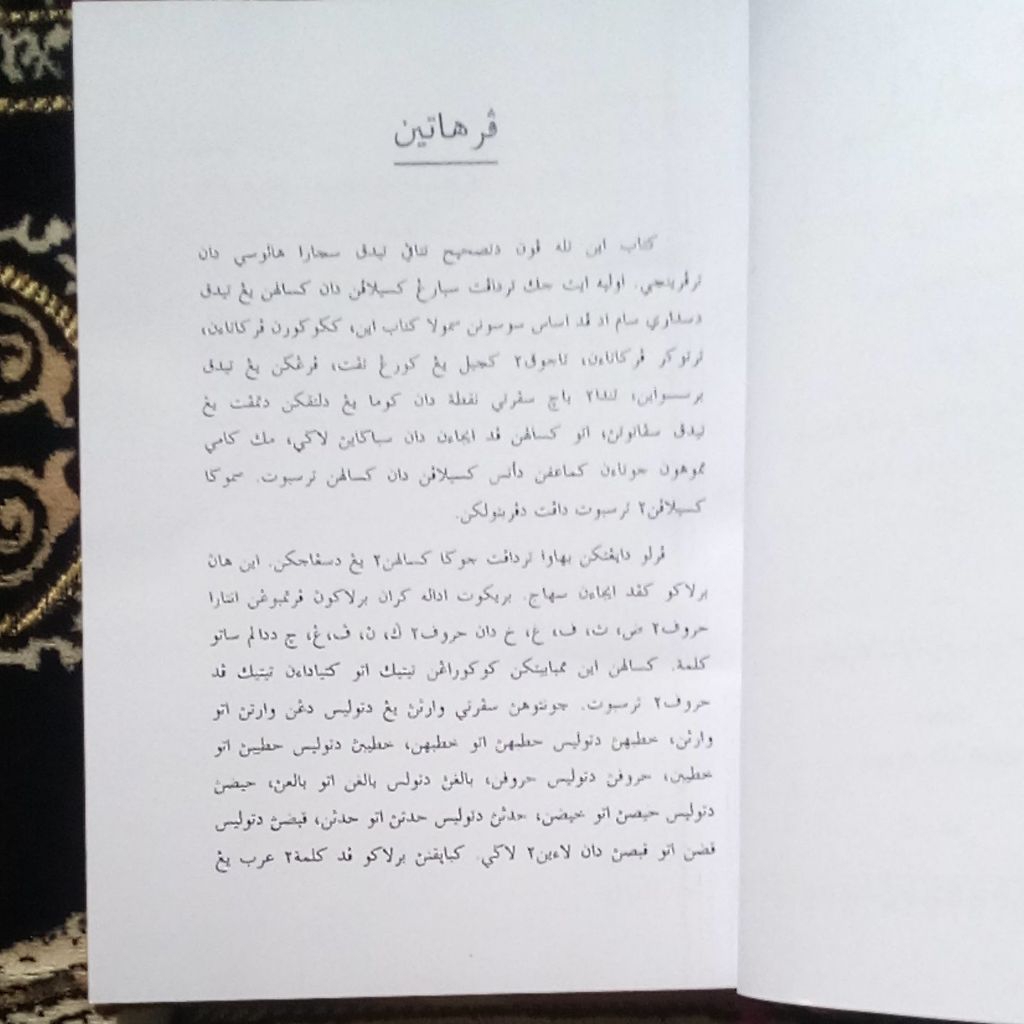 ڤرهاتين
كتاب اين تله ڤون دتصحيح تتاڤي تيدق سچارا هالوسي دان
ترڤرينچي. اوليه ايت جك تردافت سبارڠ كسيلاڤن دان كسالهن يڠ تيدق
دسداري سام اد ڤد اساس سوسونن سمولا كتاب اين، ككورڠن ڤركاتاءن،
ترتوكر ڤركاتاءن، تاجوق٢ كچيل يڠ كورڠ تڤت، ڤرڠكن يڠ تيدق
برسسواين، تندا٢ باچ سڤرتي نقطة دان كوما يڠ دلتقكن دتمڤت يڠ
تيدق سڤاتوتڽ، اتو كسالهن ڤد ايجاءن دان سباكايڽ لاكي، مك كامي
مموهون جوتاءن كماعفن دأتس كسيلاڤن دان كسالهن ترسبوت. سموكا
كسيلاڤن٢ ترسبوت داڤت دڤربتولكن.
ڤرلو دايڠتكن بهاوا تردافت جوكا كسالهن٢ يڠ دسڠاجكن. اين هاڽ
برلاكو كڤد ايجاءن سهاج. بريكوت اداله كران برلاكوڽ ڤرتمبوڠن انتارا
حروف٢ ض، ث، ف، غ، خ دان حروف٢ ݢ، ڽ، ڤ، ڠ، چ ددالم ساتو
كلمة. كسالهن اين ممبايتكن ككوراڠن تيتيك اتو كتياداءن تيتيك ڤد
حروف٢ ترسبوت. چونتوهڽ سڤرتي وارثڽ يڠ دتوليس دڠن وارتڽ اتو
وارثن، خطبهڽ دتوليس حطبهڽ اتو خطبهن، خطيبڽ دتوليس حطيبڽ اتو
خطيبن، حروفڽ دتوليس حروفن، بالغڽ دتوليس بالغن اتو بالعڽ، حيضڽ
دتوليس حيصڽ اتو حيضن، حدثڽ دتوليس حدتڽ اتو حدثن، قبضڽ دتوليس
قبضن اتو قبصڽ دان لاءين٢ لاكي. كباپقنڽ برلاكو ڤد كلمة٢ عرب يڠ